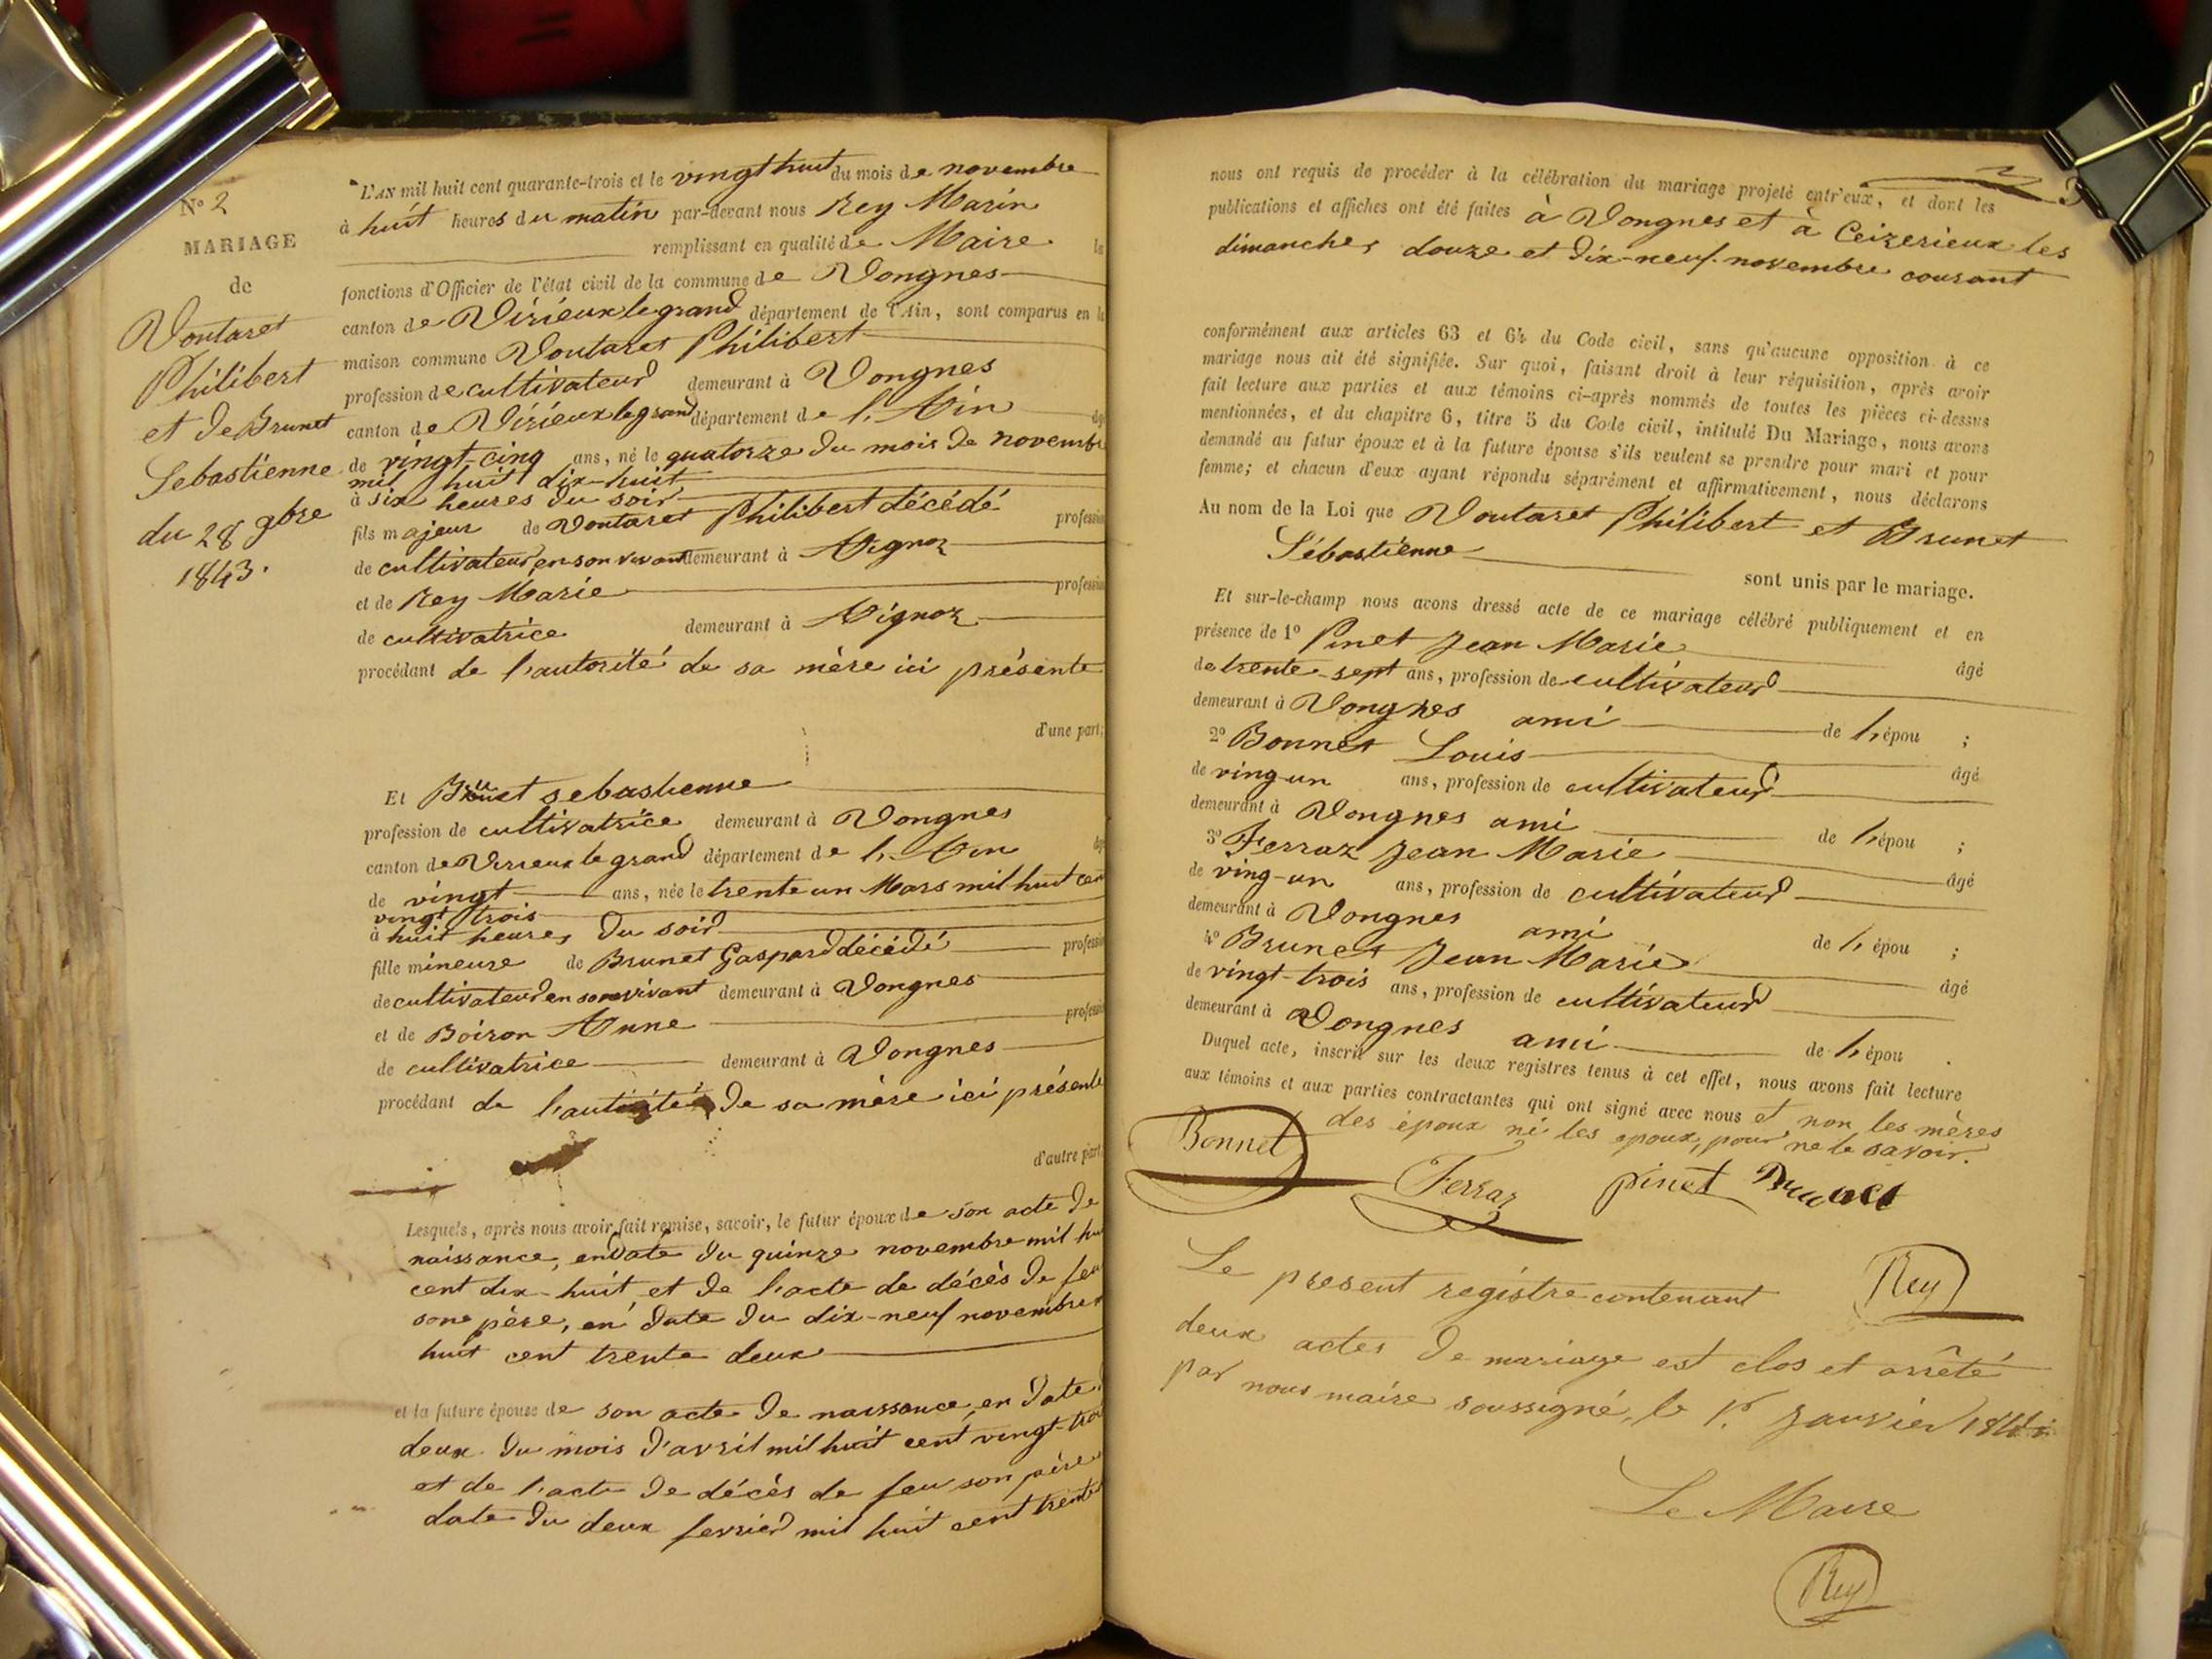 N° 2
MARIAGE
de
Voutaret
Philibert
et de Brunet
Sebastienne
du 28 9bre
1843.
L'AN mil huit cent quarante-trois et le vingt huit du mois de novembre
à huit heures du matin par-devant nous Rey Marin
remplissant en qualité de Maire les
fonctions d'Officier de l'état civil de la commune de Vongnes
canton de Virieux le grand département de l'Ain, sont comparus en la
maison commune Voutaret Philibert
profession de cultivateur demeurant à Vongnes
canton de Virieux le grand département de l'Ain âgé
de vingt-cinq ans, né le quatorze du mois de novembre
mil huit dix-huit
à six heures du soir
fils majeur de Voutaret Philibert décédé profession
de cultivateur en son vivant demeurant à Aignoz
et de Rey Marie profession
de cultivatrice demeurant à Aignoz
procédant de l'autorité de sa mère ici présente
d'une part;
Et Brunet sebastienne
profession de cultivatrice demeurant à Vongnes
canton de Virieux le grand département de l'Ain âgé
de vingt ans, née le trente un Mars mil huit cent
vingt trois
à huit heures du soir
fille mineure de Brunet Gaspard décédé profession
de cultivateur en son vivant demeurant à Vongnes
et de Boiron Anne profession
de cultivatrice demeurant à Vongnes
procédant de l'autorité de sa mère ici présente
d'autre part.
Lesquels, après nous avoir fait remise, savoir, le futur époux de son acte de
naissance, en date du quinze novembre mil huit
cent dix-huit et de l'acte de décès de feu
son père, en date du dix-neuf novembre
huit cent trente deux
et la future épouse de son acte de naissance, en date
deux du mois d'avril mil huit cent vingt-trois
et de l'acte de décès de feu son père
date du deux fevrier mil huit cent trente
3
nous ont requis de procéder à la célébration du mariage projeté entr'eux, et dont les
publications et affiches ont été faites à Vongnes et à Ceizerieux les
dimanches douze et dix-neuf novembre courant
conformément aux articles 63 et 64 du Code civil, sans qu'aucune opposition à ce
mariage nous ait été signifiée. Sur quoi, faisant droit à leur réquisition, après avoir
fait lecture aux parties et aux témoins ci-après nommés de toutes les pièces ci-dessus
mentionnées, et du chapitre 6, titre 5 du Code civil, intitulé Du Mariage, nous avons
demandé au futur époux et à la future épouse s'ils veulent se prendre pour mari et pour
femme; et chacun d'eux ayant répondu séparément et affirmativement, nous déclarons
Au nom de la Loi que Voutaret Philibert et Brunet
Sébastienne
sont unis par le mariage.
Et sur-le-champ nous avons dressé acte de ce mariage célébré publiquement et en
présence de 1° Pinet Jean Marie âgé
de trente-sept ans, profession de cultivateur
demeurant à Vongnes ami de l'épou ;
2° Bonnet Louis âgé
de ving-un ans, profession de cultivateur
demeurant à Vongnes ami de l'épou ;
3° Ferraz Jean Marie âgé
de ving-un ans, profession de cultivateur
demeurant à Vongnes ami de l'épou ;
4° Brunet Jean Marie âgé
de vingt-trois ans, profession de cultivateur
demeurant à Vongnes ami de l'épou .
Duquel acte, inscrit sur les deux registres tenus à cet effet, nous avons fait lecture
aux témoins et aux parties contractantes qui ont signé avec nous et non les mères
des époux ni les epoux, pour ne le savoir.
Bonnet Ferraz pinet Brunet
Rey
Le present registre contenant
deux actes de mariage est clos et arrêté
par nous maire soussigné, le 1er Janvier 1844
Le Maire
Rey